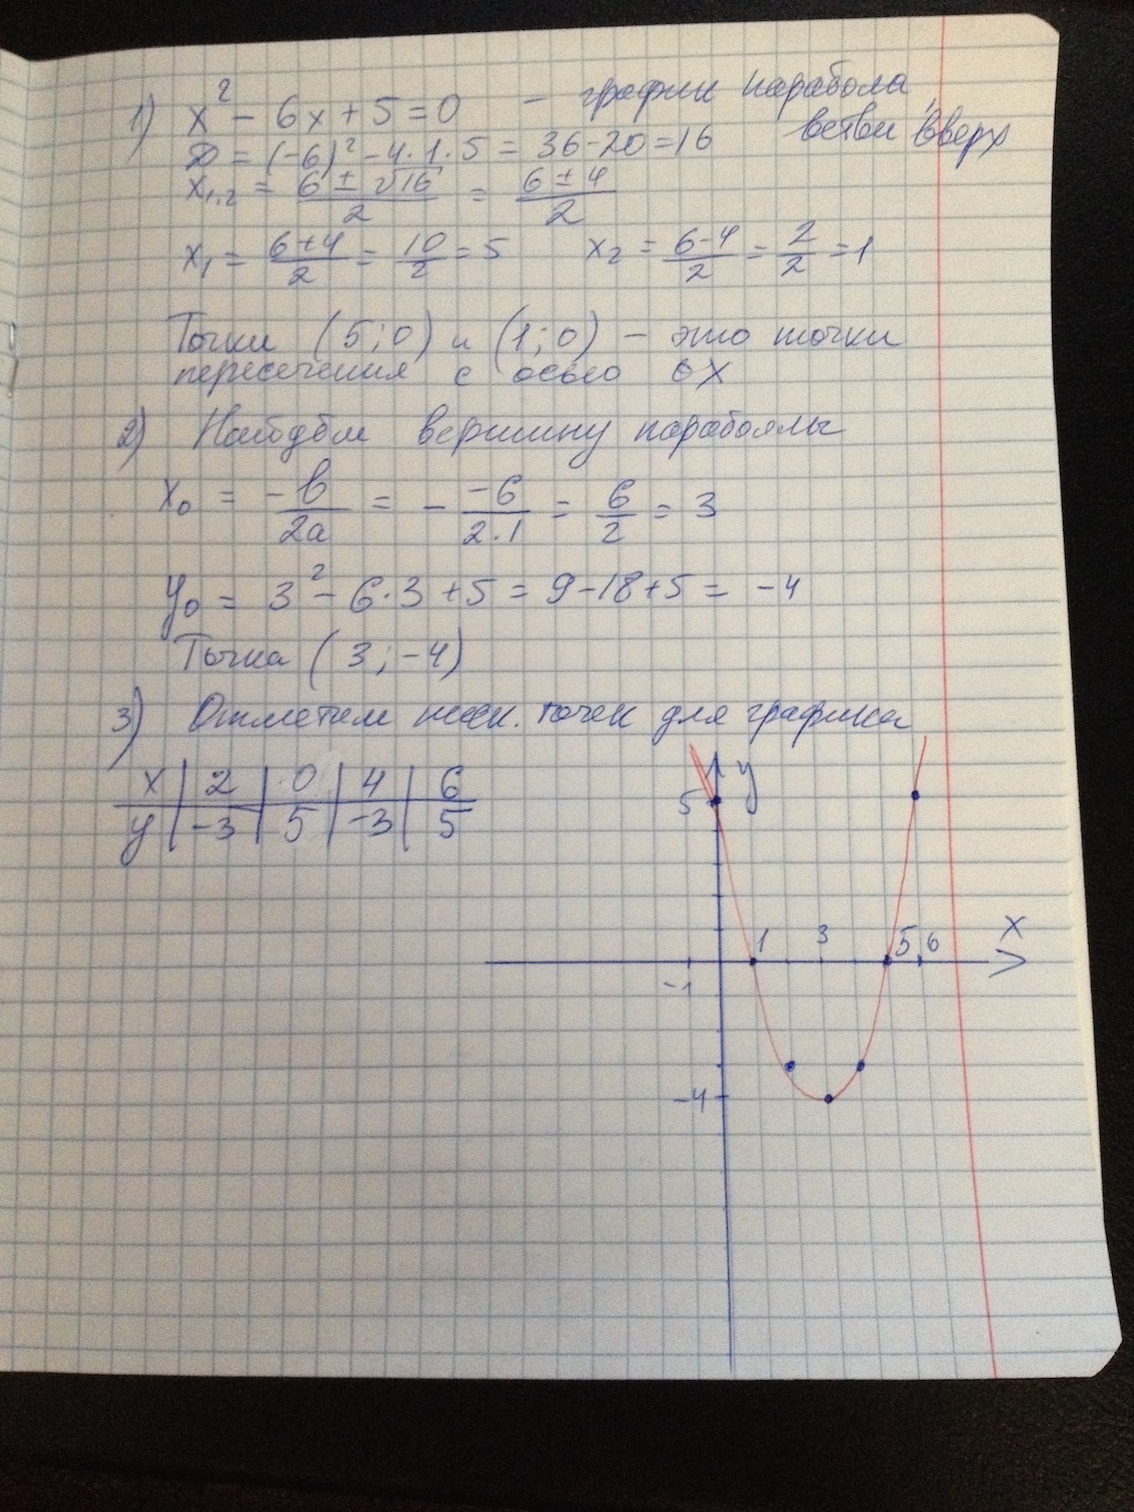 1) x² - 6x + 5 = 0 - график парабола,
ветви вверх
D = (-6)² - 4·1·5 = 36 - 20 = 16
x₁,₂ = (6 ± √16)/2 = (6 ± 4)/2
x₁ = (6+4)/2 = 10/2 = 5 x₂ = (6-4)/2 = 2/2 = 1
Точки (5; 0) и (1; 0) - это точки
пересечения с осью OX
2) Найдём вершину параболы
x₀ = -b/2a = - -6/2·1 = 6/2 = 3
y₀ = 3² - 6·3 + 5 = 9 - 18 + 5 = -4
Точка (3; -4)
3) Отметим неск. точек для графика
x | 2 | 0 | 4 | 6
y | -3 | 5 | -3 | 5
y
5
1 3 5 6 x
-1
-4